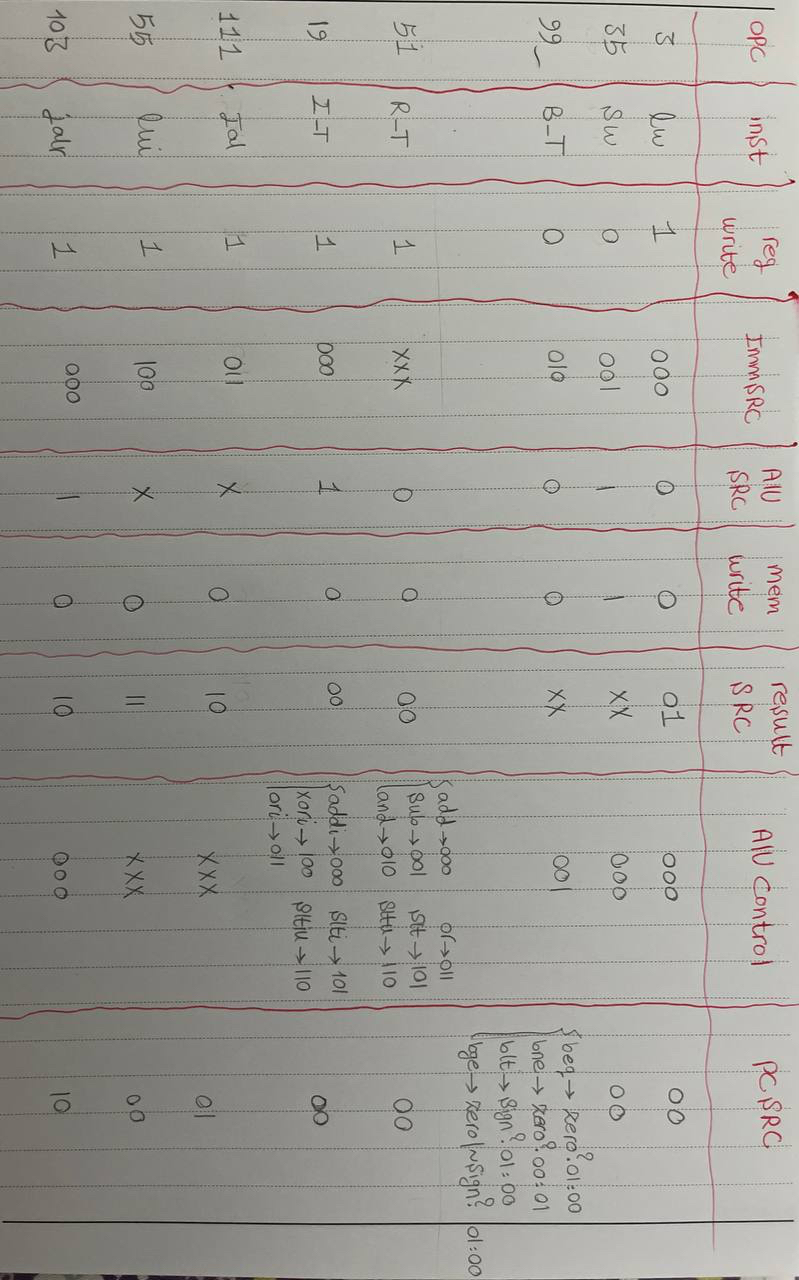 OPC inst reg write ImmSRC AlU SRC mem write result SRC AlU Control PC SRC
3 lw 1 000 0 0 01 000 00
35 sw 0 001 1 1 XX 000 00
99 B_T 0 010 0 0 XX 001 {beq → zero? 01:00
bne → zero? 00:01
blt → sign? 01:00
bge → zero|~sign? 01:00
51 R_T 1 XXX 0 0 00 {add → 000 or → 011 00
sub → 001 slt → 101
and → 010 sltu → 110
19 I_T 1 000 1 0 00 {addi → 000 slti → 101 00
xori → 100 sltiu → 110
ori → 011
111 Jal 1 011 X 0 10 XXX 01
55 lui 1 100 X 0 11 XXX 00
103 jalr 1 000 1 0 10 000 10